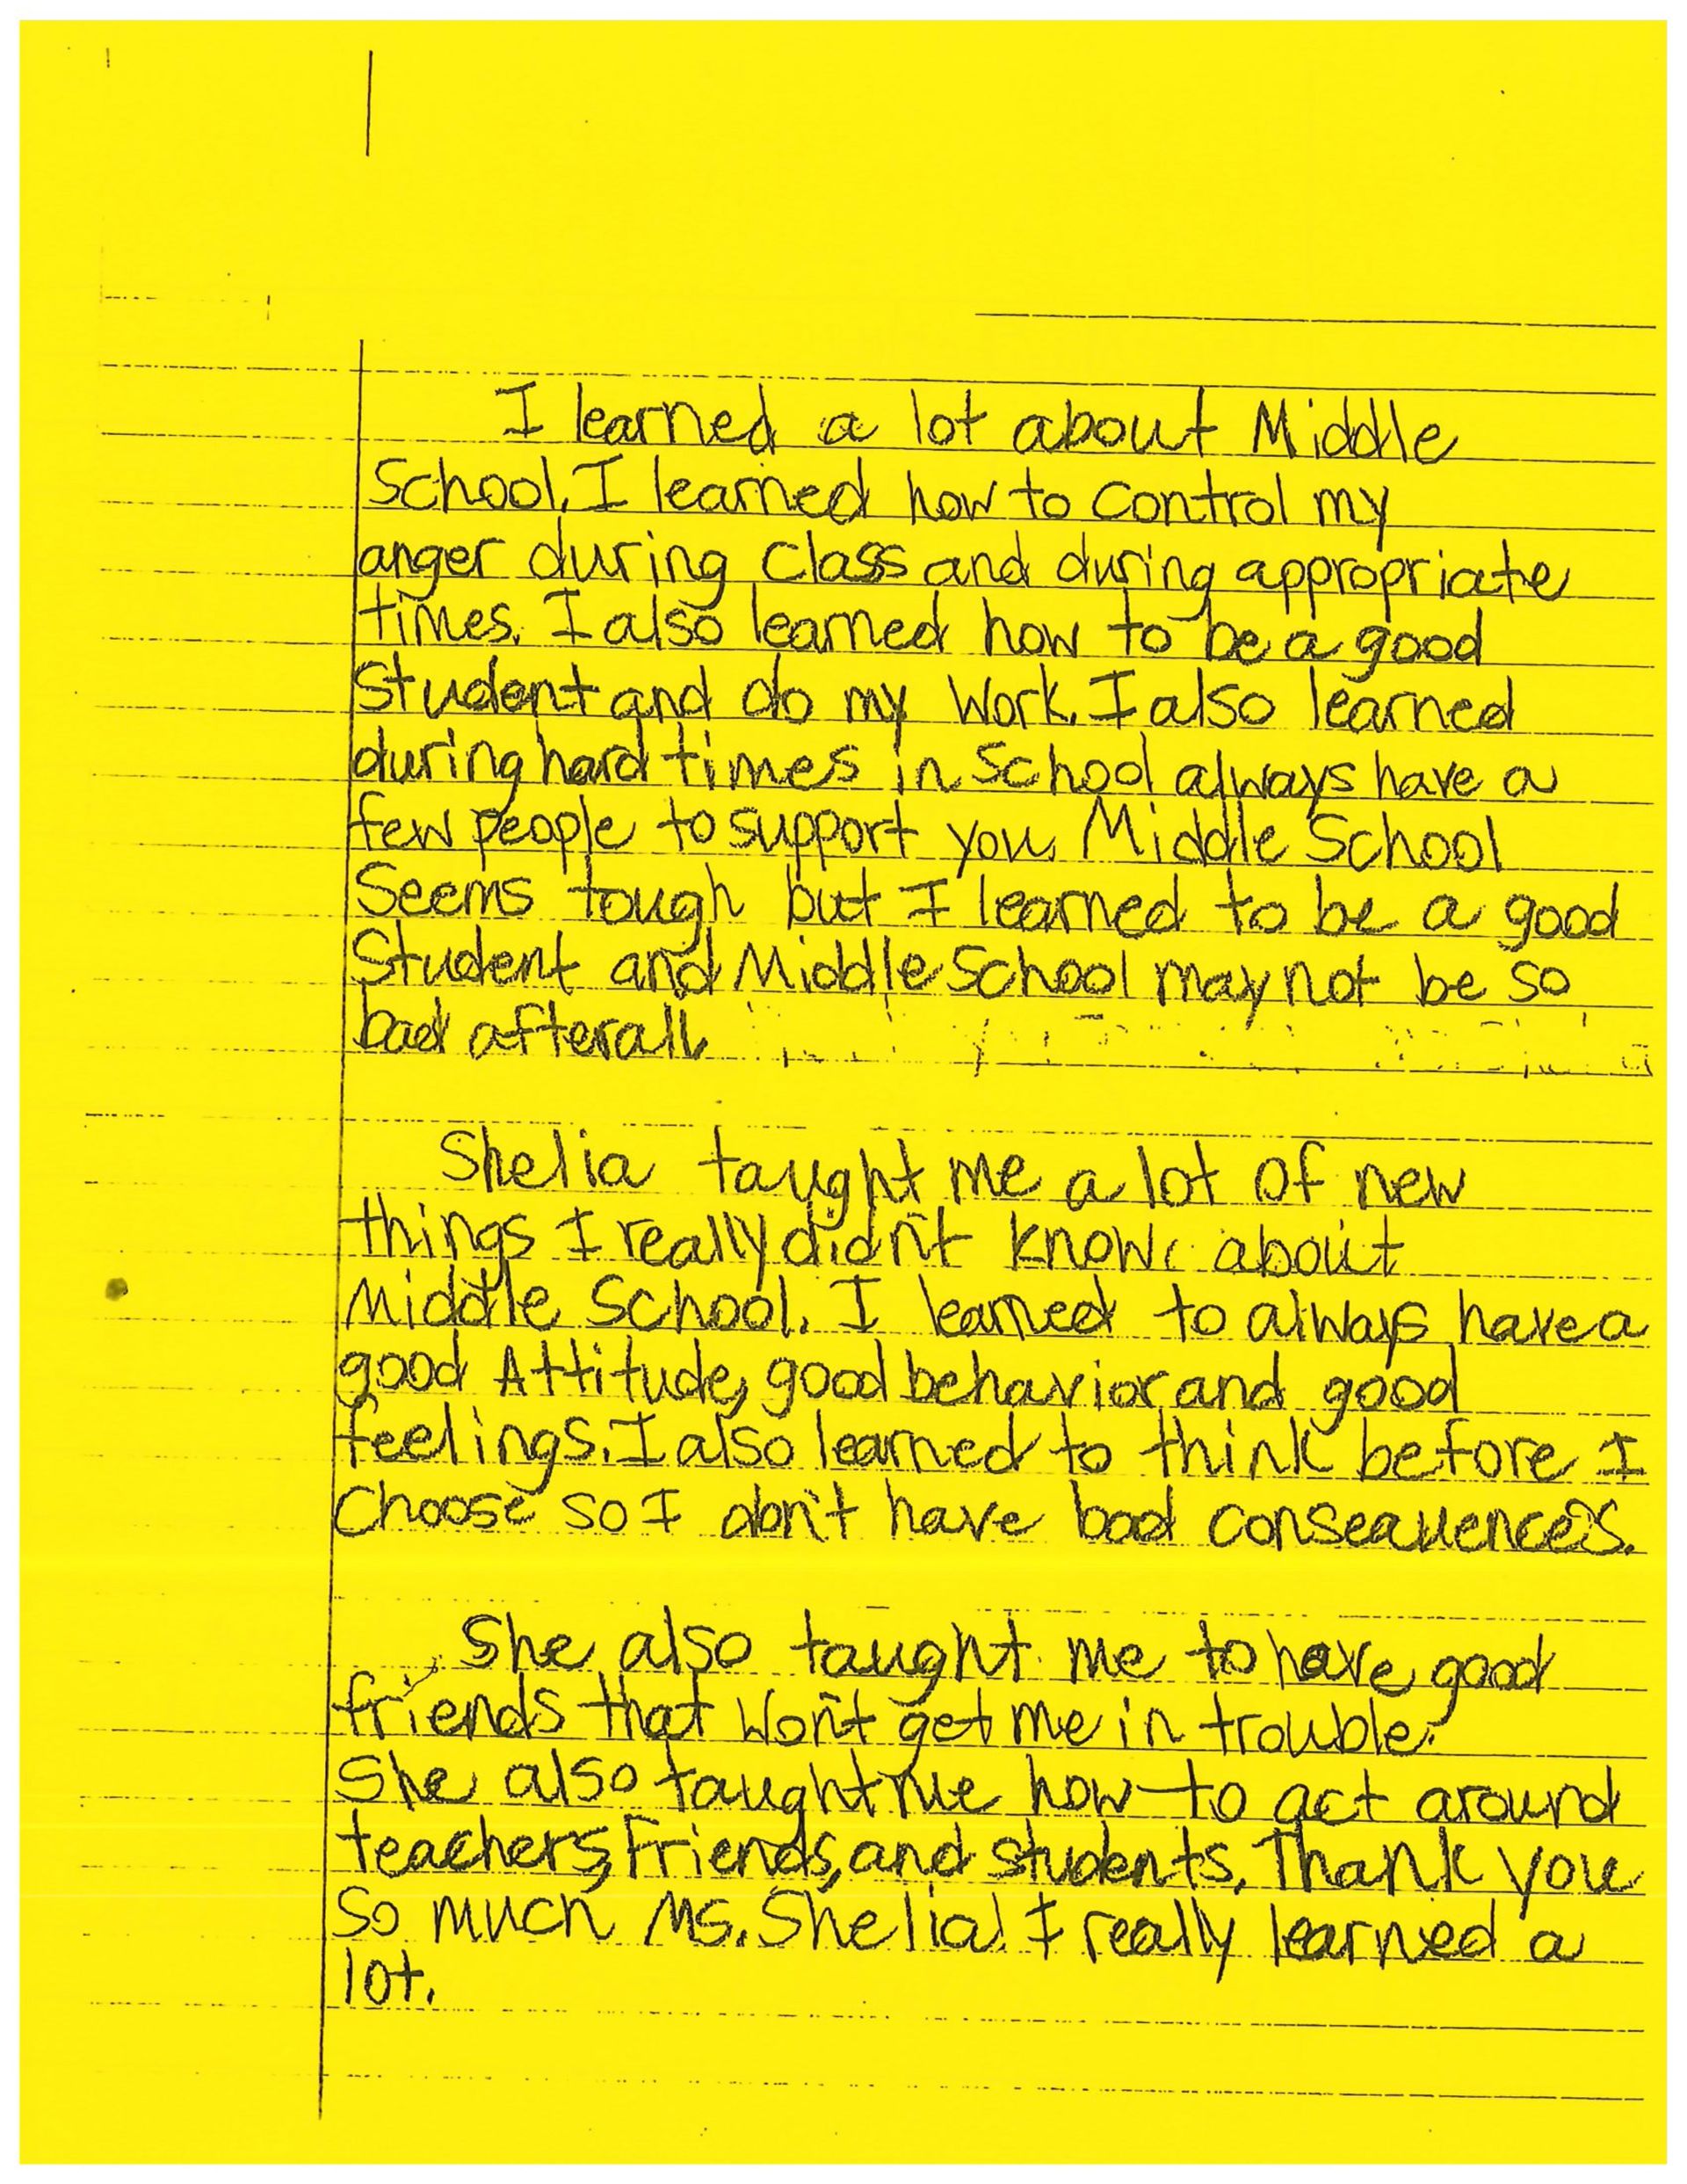 I learned a lot about Middle
School. I learned how to control my
anger during class and during appropriate
times. I also learned how to be a good
Student and do my work. I also learned
during hard times in school always have a
few people to support you. Middle School
Seems tough but I learned to be a good
Student and Middle School may not be so
bad afterall.
Shelia taught me a lot of new
things I really didn't know about
Middle School. I learned to always have a
good Attitude, good behavior and good
feelings. I also learned to think before I
Choose so I don't have bad consequences.
She also taught me to have good
friends that won't get me in trouble.
She also taught me how to act around
teachers, friends, and students. Thank you
So much Ms. Shelia! I really learned a
lot.